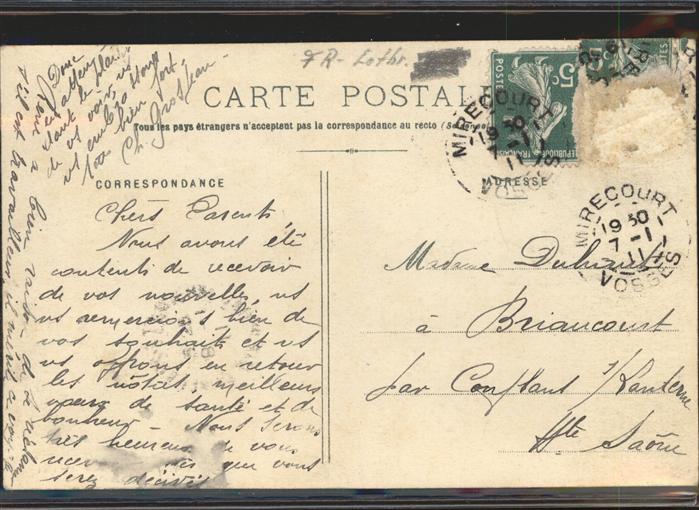 FR - Lothr.
CARTE POSTALE
Tous les pays étrangers n'acceptent pas la correspondance au recto
CORRESPONDANCE
ADRESSE
5c
POSTES
RÉPUBLIQUE FRANÇAISE
MIRECOURT
19 30
7 - 1
11
VOSGES
MIRECOURT
19 30
7 - 1
11
VOSGES
Chers Parents,
Nous avons été
contents de recevoir
de vos nouvelles, ns
vs remercions bien de
vos souhaits et ns
vs offrons en retour
les nôtres, meilleurs
vœux de santé et de
bonheur - Nous serons
très heureux de vous
que vous
serez décidés
Donc
en attendant le plaisir
de vs voir, ns
vs embrassons
tous bien fort,
Ch. Grosjean
Madame
à Briaucourt
par Conflans s/Lanterne
Hte Saône